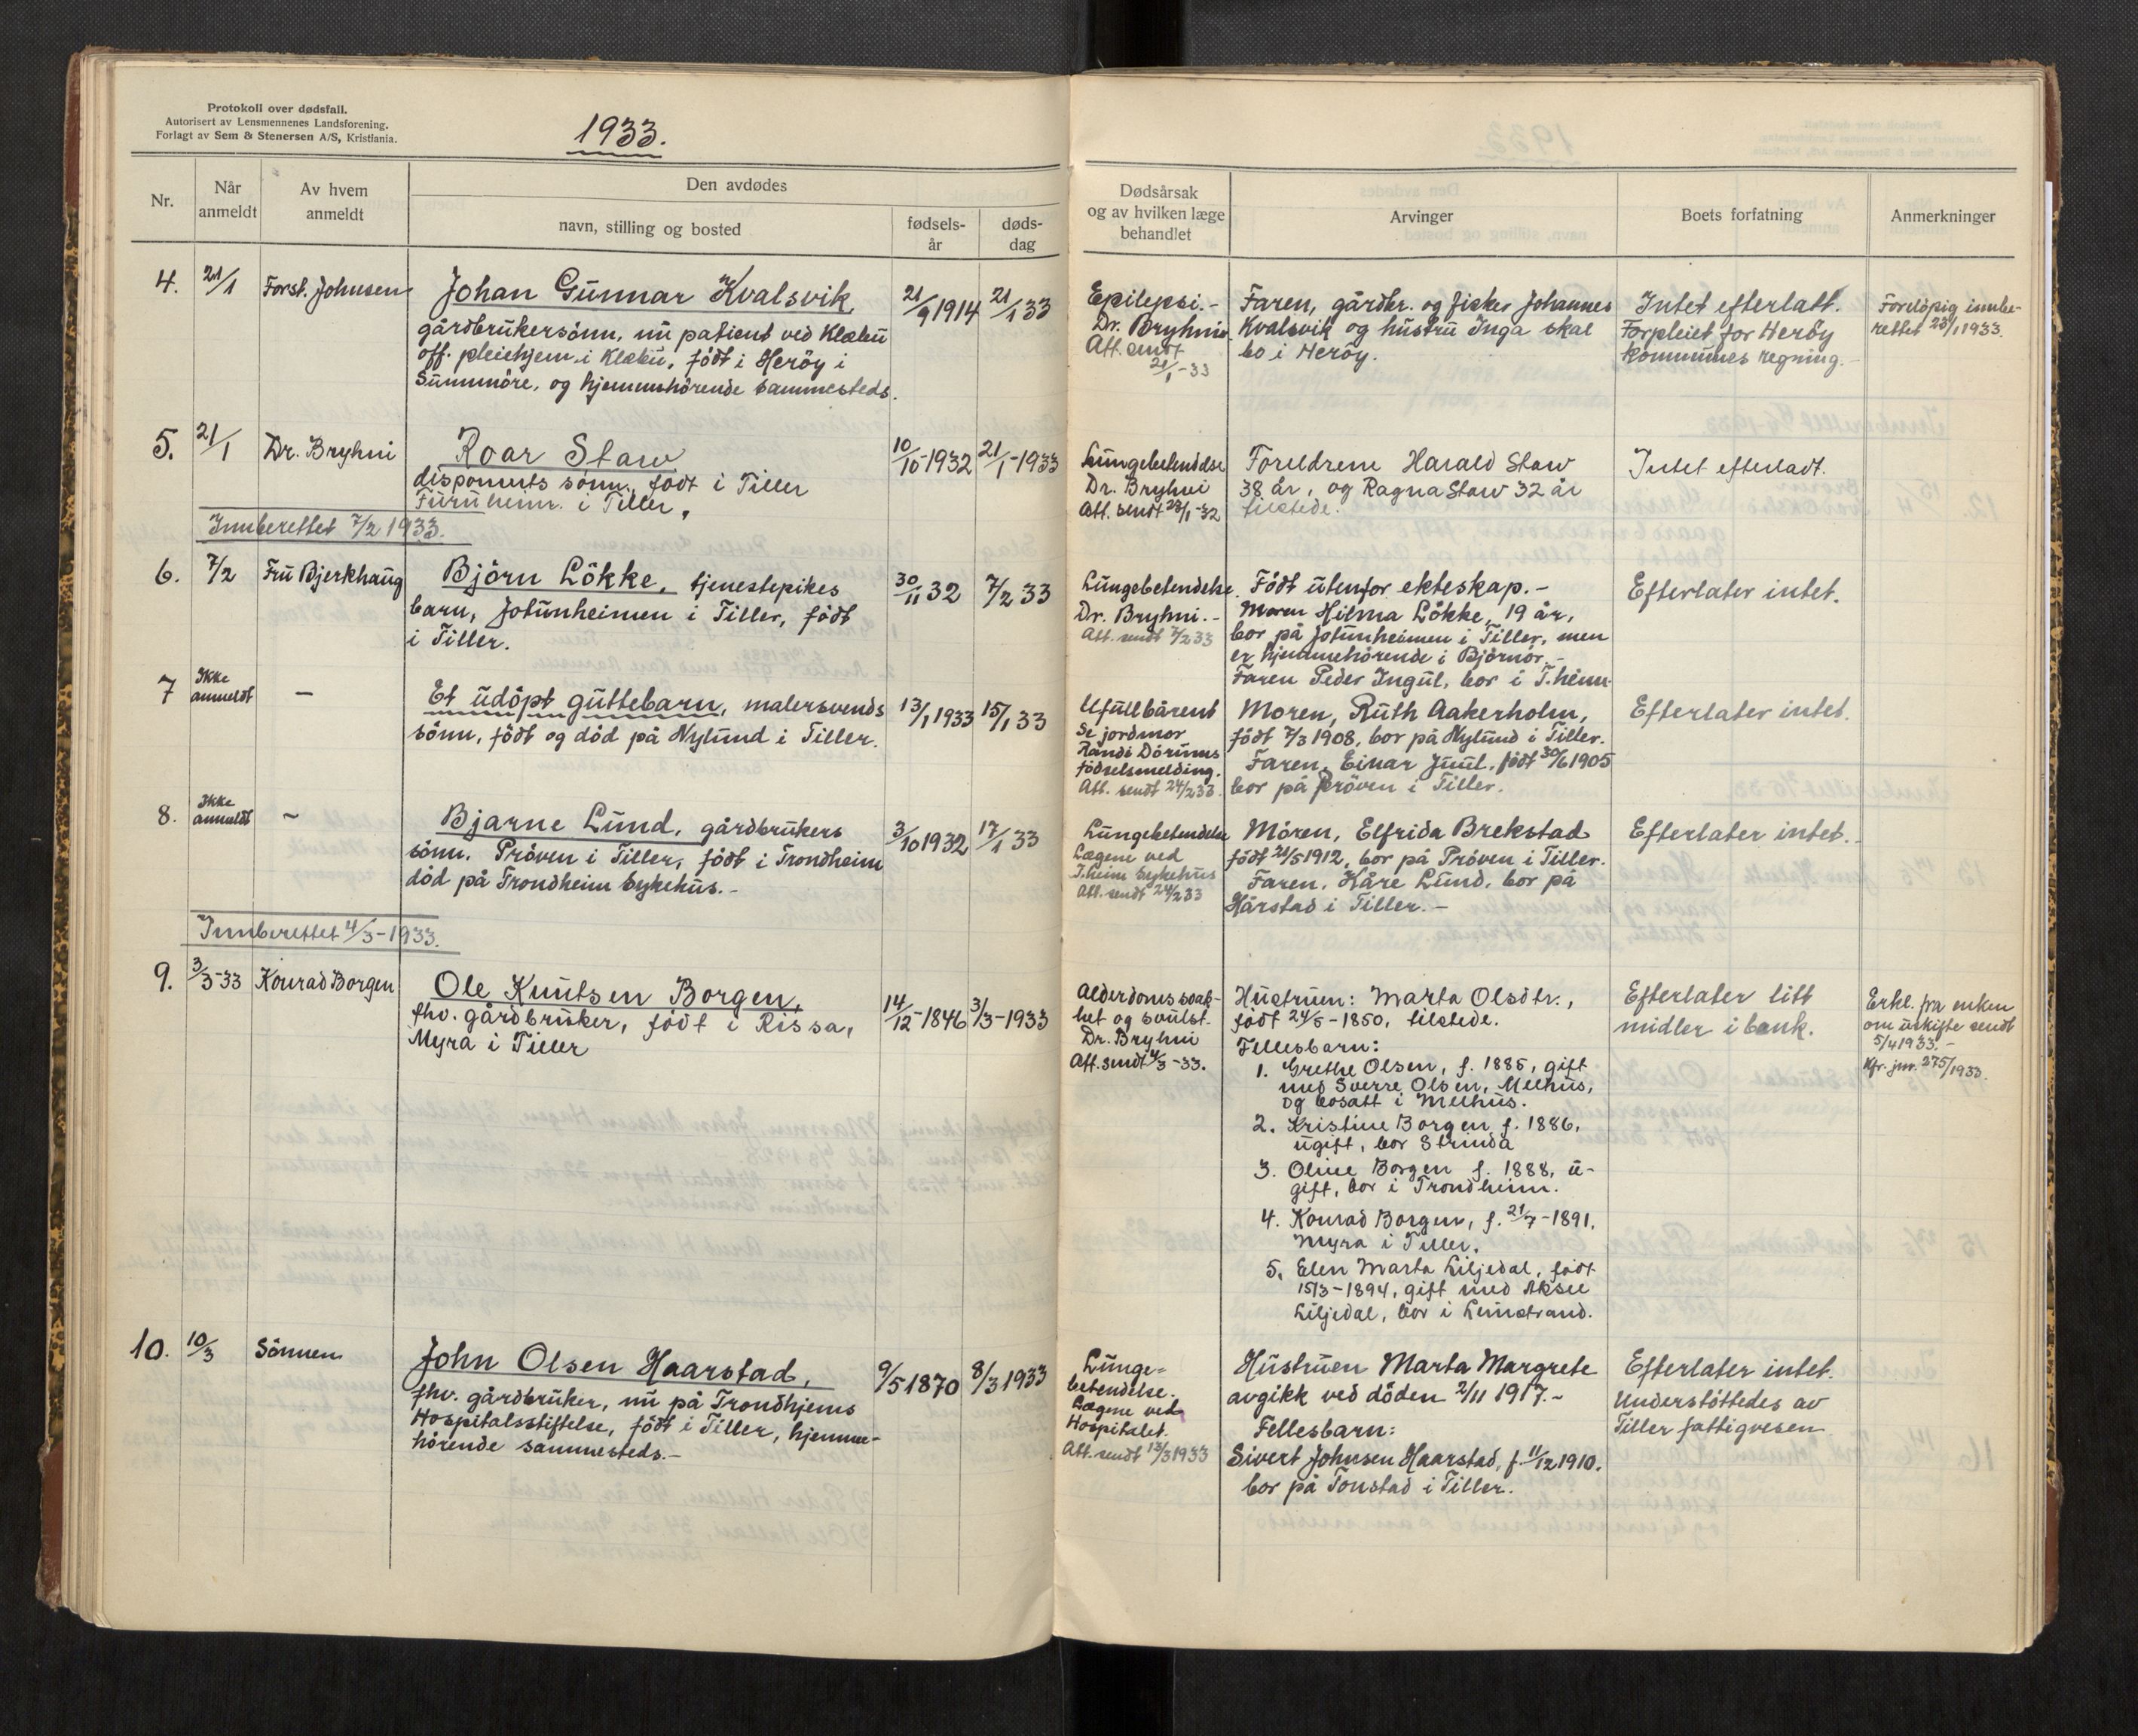 Protokoll over dødsfall.
Autorisert av Lensmennenes Landsforening.
Forlagt av Sem & Stenersen A/S, Kristiania.
1933.
Nr.
Når anmeldt
Av hvem anmeldt
Den avdødes
navn, stilling og bosted
fødselsår
dødsdag
Dødsårsak
og av hvilken læge
behandlet
Arvinger
Boets forfatning
Anmerkninger
4. 21/1 Forst. Johnsen
Johan Gunnar Kvalsvik,
gårdbrukersönn, nu patient ved Klæbu
off. pleiehjem i Klæbu, född i Heröy i
Sunnmöre, og hjemmehörende sammesteds.
21/9 1914 21/1 33
Epilepsi.-
Dr. Bryhni.
Att. sendt
21/1-33
Faren, gårdbr. og fisker Johannes
Kvalsvik og hustru Inga skal
bo i Heröy.
Intet efterlatt.
Forpleiet for Heröy
kommunes regning.-
Foreløpig innbe-
rettet 23/1 1933.
5. 21/1 Dr. Bryhni
Roar Staw
disponents sönn, född i Tiller
Furuheim i Tiller.
10/10-1932 21/1-1933
Lungebetendelse
Dr. Bryhni
Att. sendt 23/1-32
Foreldrene Harald Staw
38 år, og Ragna Staw 32 år
tilstede.
Intet efterladt.
Innberettet 7/2 1933.
6. 7/2 Fru Bjerkhaug
Björn Lökke, tjenestepikes
barn, Jotunheimen i Tiller, född
i Tiller.
30/11 32 7/2 33
Lungebetendelse.
Dr. Bryhni.-
Att. sendt 7/2 33
Född utenfor ekteskap.-
Moren Hilma Lökke, 19 år,
bor på Jotunheimen i Tiller, men
er hjemmehörende i Björnör.-
Faren Peder Ingul, bor i T.heim.
Efterlater intet.
7 Ikke
anmeldt -
Et udöpt guttebarn, malersvends
sönn, född og död på Nylund i Tiller.
13/1 1933 15/1 33
Ufullbårent
Se jordmor
Randi Dörums
födselsmelding.
Att. sendt 24/2 33.
Moren, Ruth Aakerholm,
född 7/3 1908, bor på Nylund i Tiller.
Faren, Einar Juul, född 30/6 1905
bor på Pröven i Tiller.
Efterlater intet.
8. Ikke
anmeldt -
Bjarne Lund, gårdbrukers
sönn. Pröven i Tiller, född i Trondheim
död på Trondheim Sykehus.-
3/10 1932 17/1 33
Lungebetendelse
Lægene ved
T.heim Sykehus
Att. sendt 24/2 33
Moren, Elfrida Brekstad
född 21/5 1912, bor på Pröven i Tiller.
Faren, Kåre Lund, bor på
Hårstad i Tiller.-
Efterlater intet.-
Innberettet 4/3-1933.
9. 3/3-33 Konrad Borgen
Ole Knutsen Borgen,
fhv. gårdbruker, född i Rissa,
Myra i Tiller
14/12-1846 3/3-1933
Alderdomssvak-
het og svulst.
Dr. Bryhni
Att. sendt 4/3-33.
Hustruen: Marta Olsdtr.,
född 24/5-1850, tilstede.
Fellesbarn:
1. Grethe Olsen, f. 1885, gift
med Sverre Olsen, Melhus,
og bosatt i Melhus.
2. Kristine Borgen f. 1886,
ugift, bor Strinda
3. Oline Borgen f. 1888, u-
gift, bor i Trondheim.
4. Konrad Borgen, f. 21/7-1891,
Myra i Tiller.
5. Elen Marta Liljedal, född
15/3-1894, gift med Aksel
Liljedal, bor i Leinstrand.
Efterlater litt
midler i bank.
Erkl. fra enken
om uskifte sendt
5/4 1933.-
Kfr. jnr. 275/1933.
10. 10/3 Sönnen
John Olsen Haarstad,
fhv. gårdbruker, nu på Trondhjems
Hospitalsstiftelse, född i Tiller, hjemme-
hörende sammesteds.-
9/5 1870 8/3 1933
Lunge-
betendelse.
Lægene ved
Hospitalet.
Att. sendt 13/3 1933
Hustruen Marta Margrete
avgikk ved döden 2/11 1917.-
Fellesbarn:
Sivert Johnsen Haarstad, f. 11/12 1910.
bor på Tonstad i Tiller.
Efterlater intet.
Understöttedes av
Tiller fattigvesen